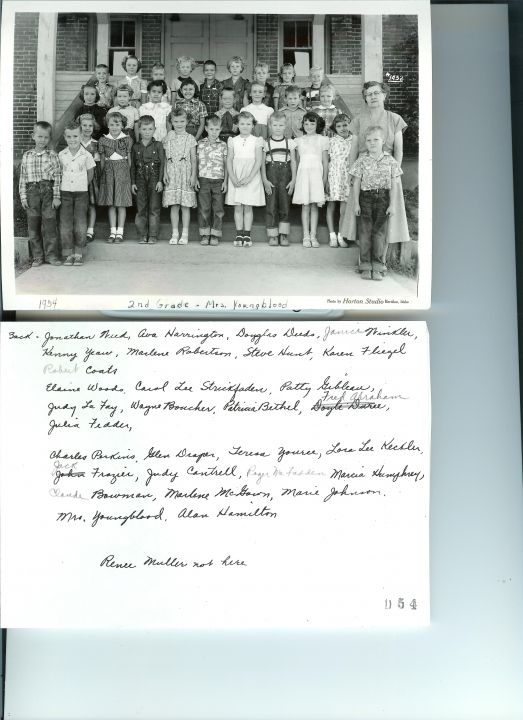 1952
1954 2nd Grade - Mrs. Youngblood Photo by Horton Studio
Back - Jonathan Weed, Ava Harrington, Douglas Deeds, Janice Winkler,
Kenny Yeaw, Marlene Robertson, Steve Hunt, Karen Fliegel
Robert Coats
Elaine Woods, Carol Lee Strickfaden, Patty Gibleau,
Fred Abraham
Judy La Fay, Wayne Boucher, Patricia Bethel, Doyle
Julia Fedder,
Charles Perkins, Glen Draper, Teresa Youree, Lora Lee Kechler,
Jack
John Frazier, Judy Cantrell, Roger McFadden Marcia Humphrey,
Claude Bowman, Marlene McGown, Marie Johnson.
Mrs. Youngblood, Alan Hamilton
Renee Muller not here
054